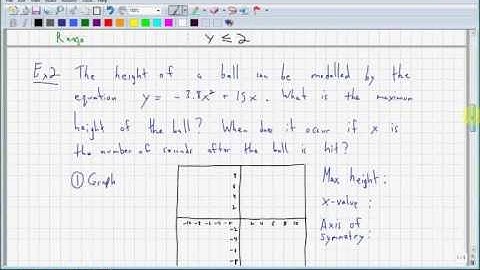 Range y ≤ 2
Ex2 The height of a ball can be modelled by the
equation y = -3.8x² + 15x. What is the maximum
height of the ball? When does it occur if x is
the number of seconds after the ball is hit?
① Graph
Max height:
x-value:
Axis of
symmetry:
8
6
4
2
-10 -8 -6 -4 -2 2 4 6 8 10
-2
-4
-6
-8